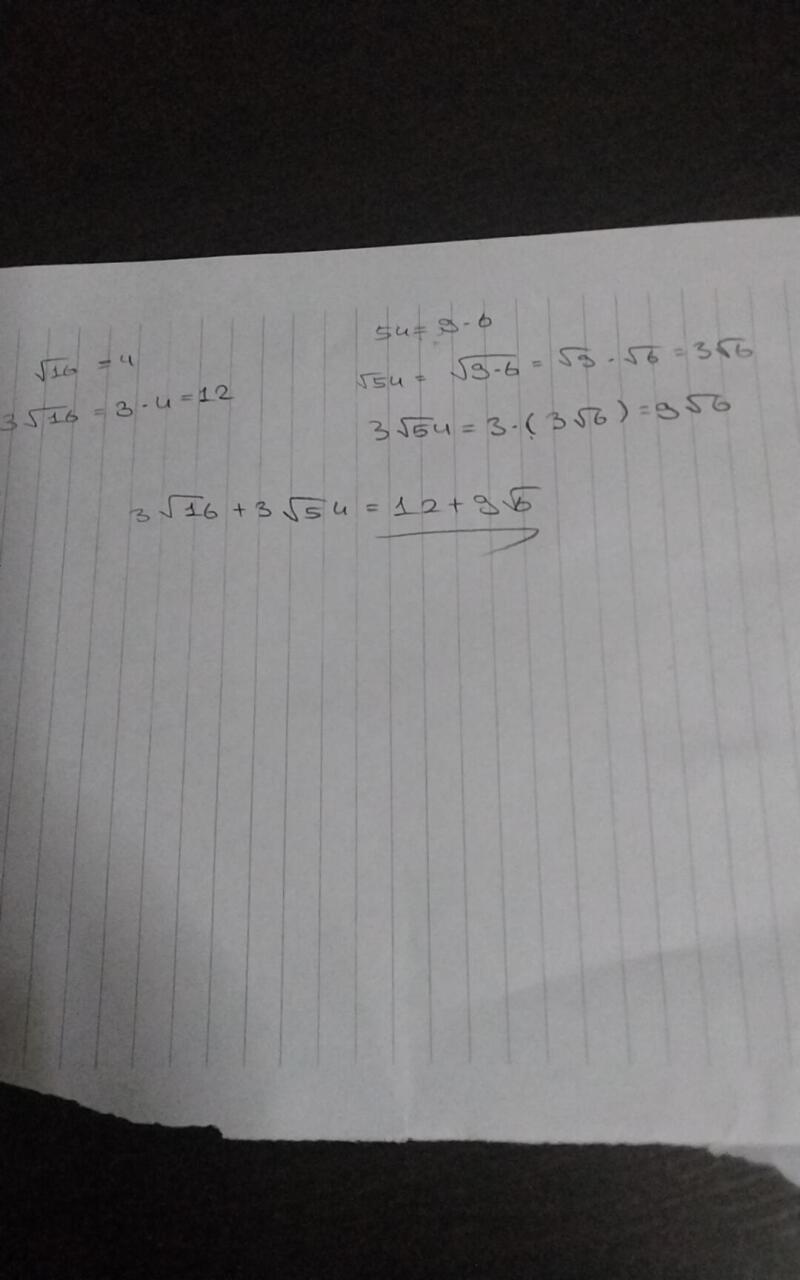 √16 = 4
3√16 = 3 · 4 = 12
54 = 9 · 6
√54 = √9·6 = √9 · √6 = 3√6
3√54 = 3 · (3√6) = 9√6
3√16 + 3√54 = 12 + 9√6